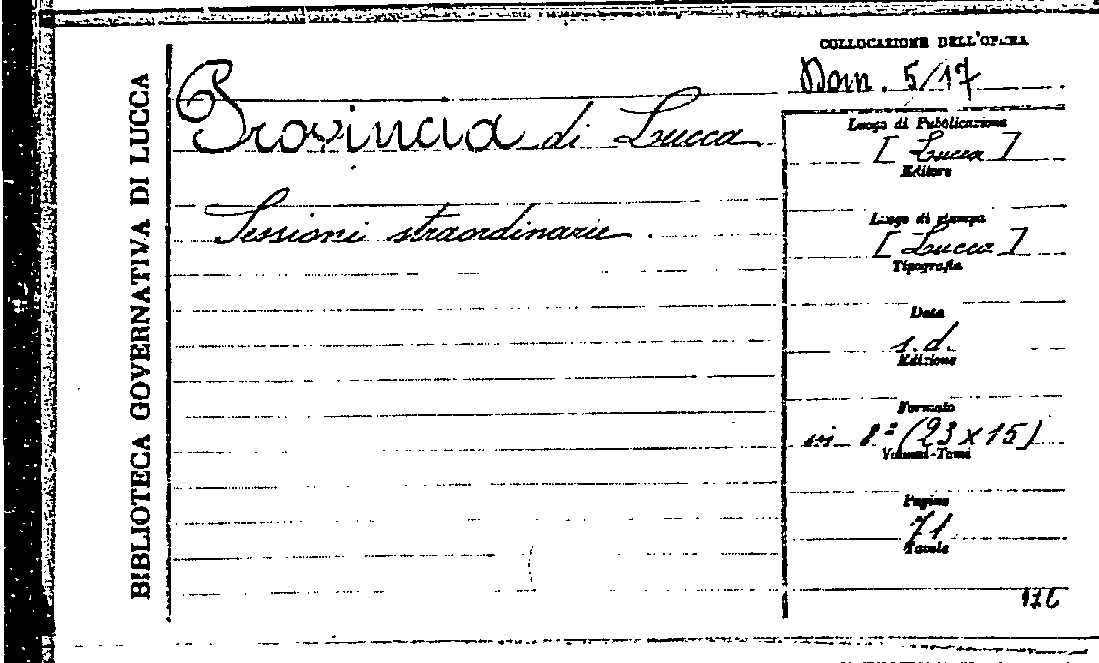 BIBLIOTECA GOVERNATIVA DI LUCCA
Provincia di Lucca
Sessioni straordinarie.
COLLOCAZIONE DELL'OPERA
5/17
Luogo di Pubblicazione
[Lucca]
Editore
Luogo di stampa
[Lucca]
Tipografia
Data
s.d.
Edizione
Formato
in 8º (23x15)
Volumi-Tomi
Pagine
71
Tavole